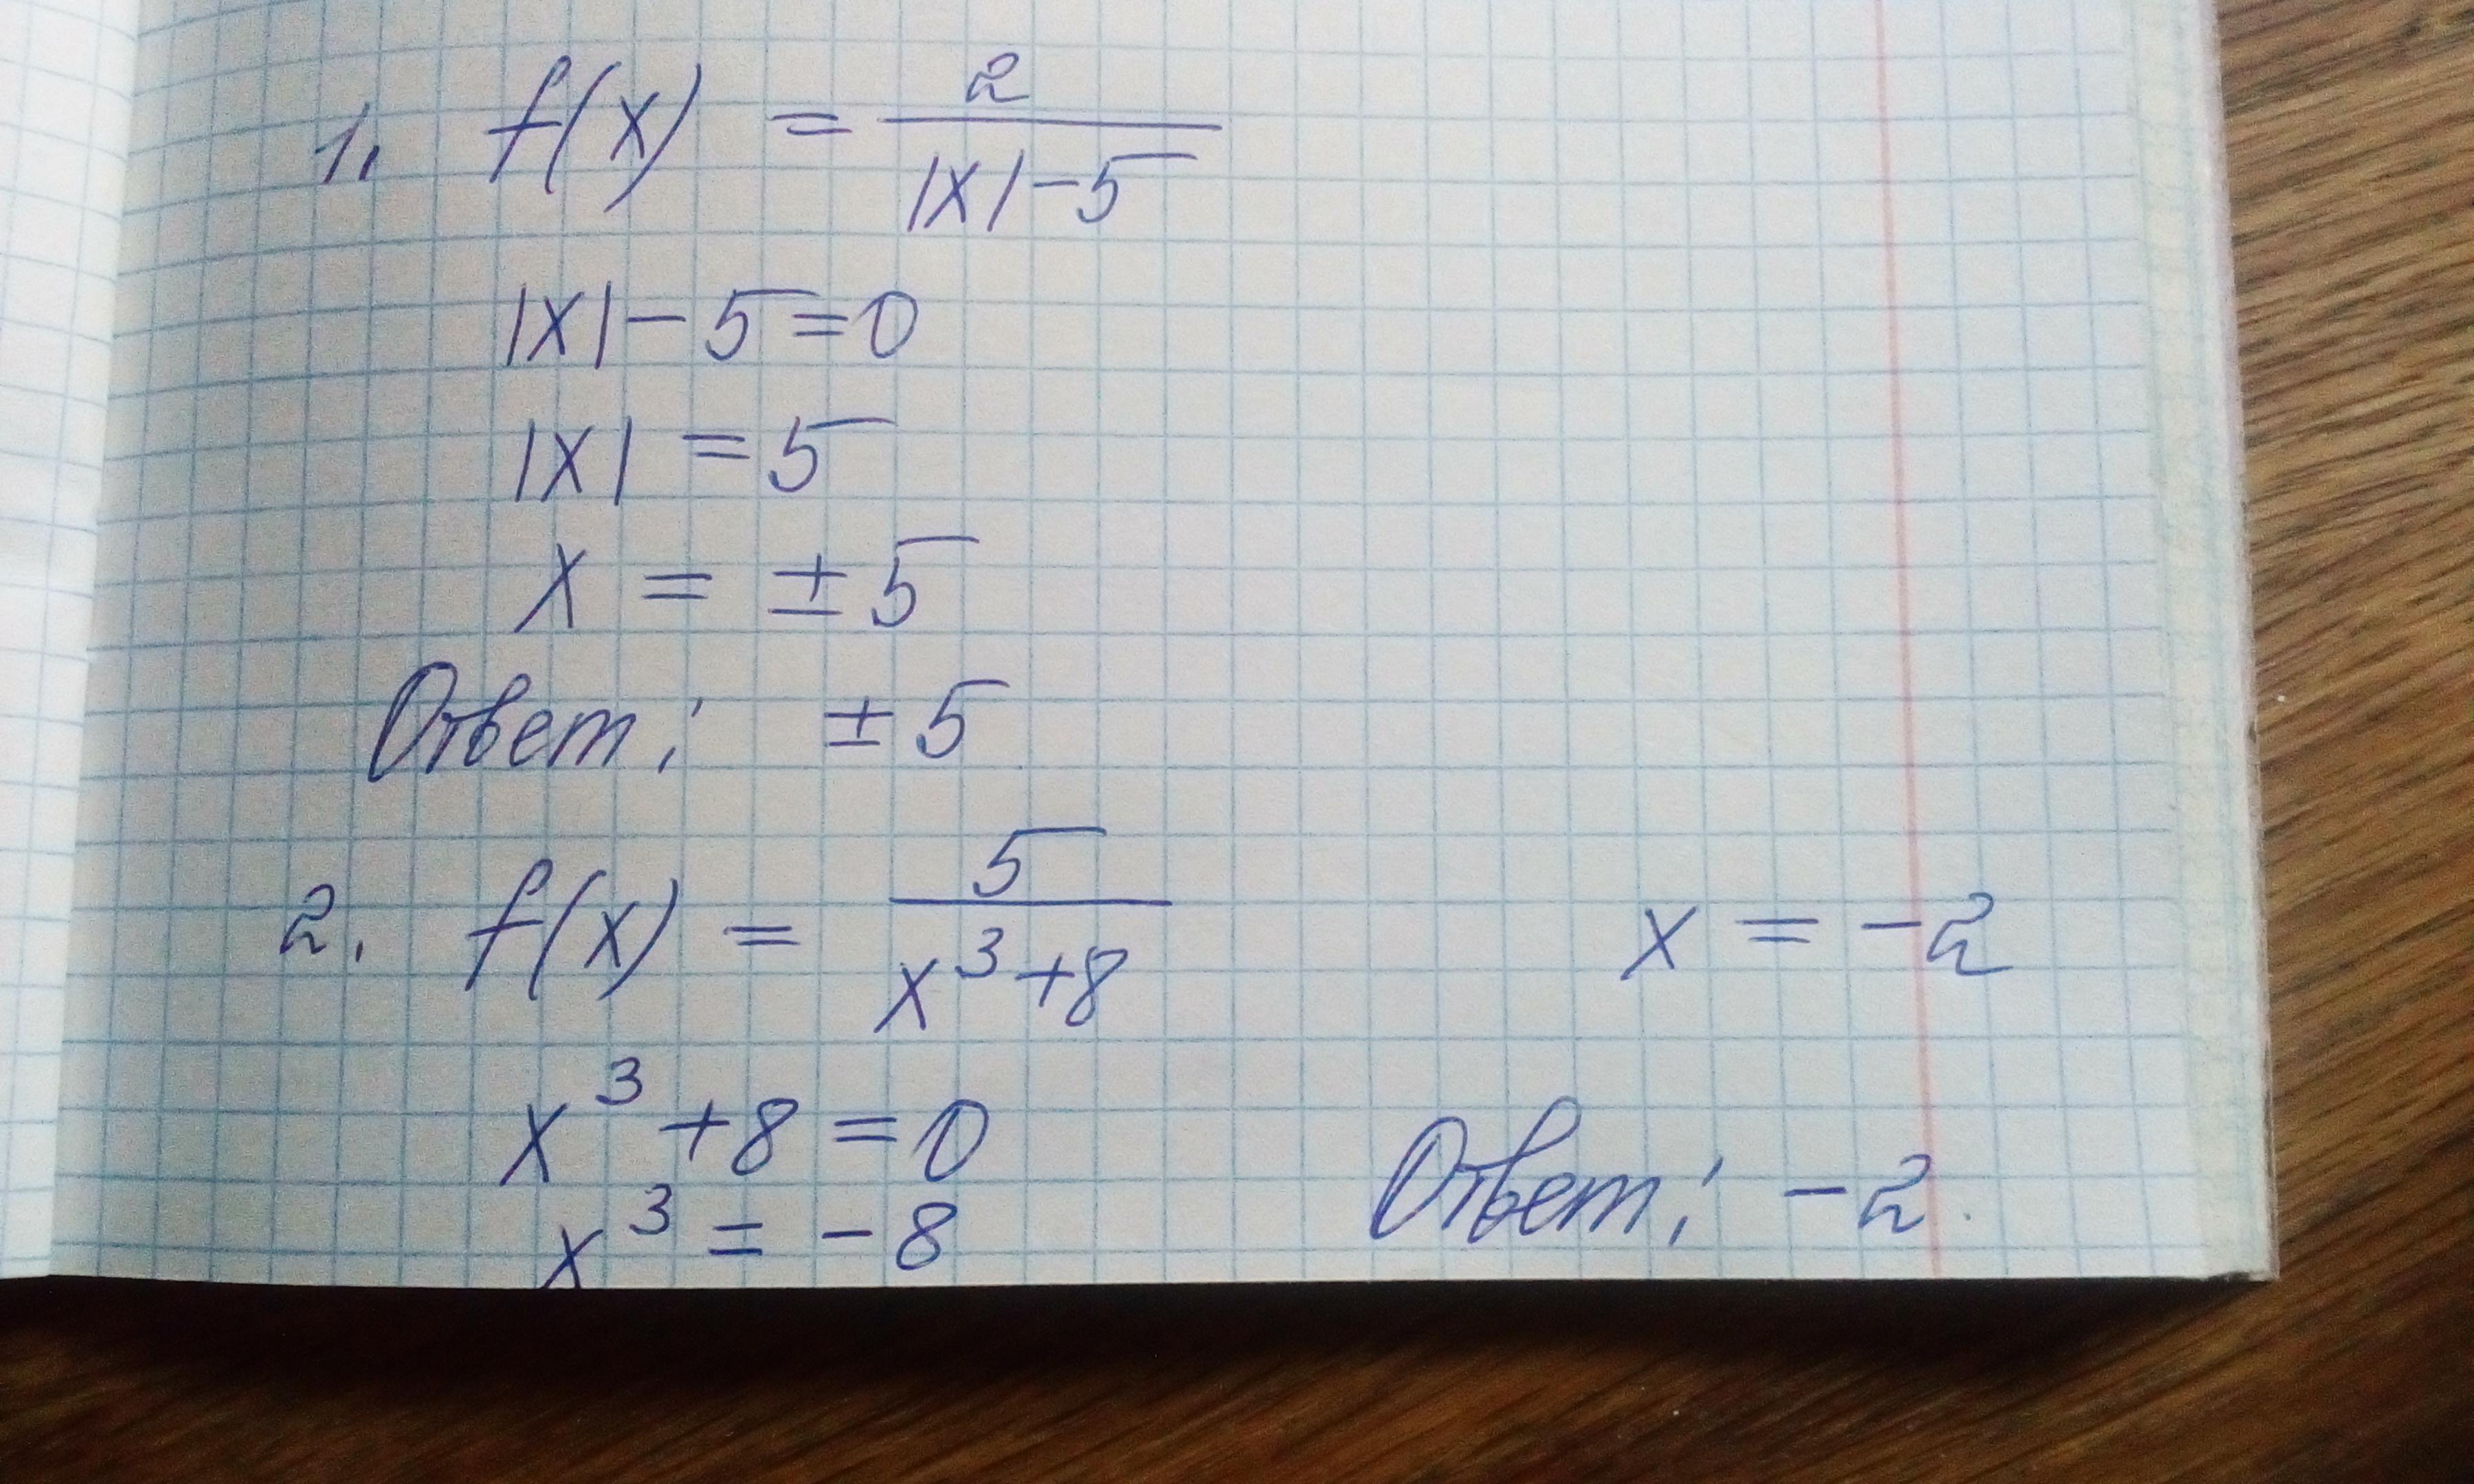 1. f(x) = 2/(|x|-5)
|x|-5=0
|x| = 5
x = ±5
Ответ: ±5
2. f(x) = 5/(x³+8)
x³+8=0
x³ = -8
x = -2
Ответ: -2.